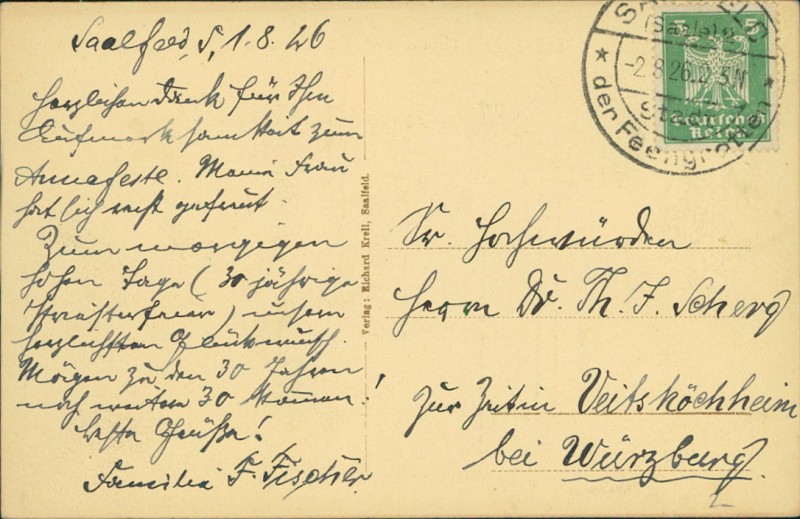 Saalfeld, S, 1.8.26
Herzlichen Dank für Ihre
Aufmerksamkeit zum
Annafeste. Meine Frau
hat sich recht gefreut.
Zum morgigen
hohen Tage (30 jährige
Priesterfeier) unsern
herzlichsten Glückwunsch.
Mögen zu den 30 Jahren
noch weitere 30 kommen!
Beste Grüße!
Familie F. Fischer
Verlag: Richard Krell, Saalfeld.
(Saale)
-2.8.26.
der Feengrotten
5 5
Deutsches
Reich
Sr. Hochwürden
Herrn Dr. Th. J. Scherg
zur Zeit in Veitshöchheim
bei Würzburg.